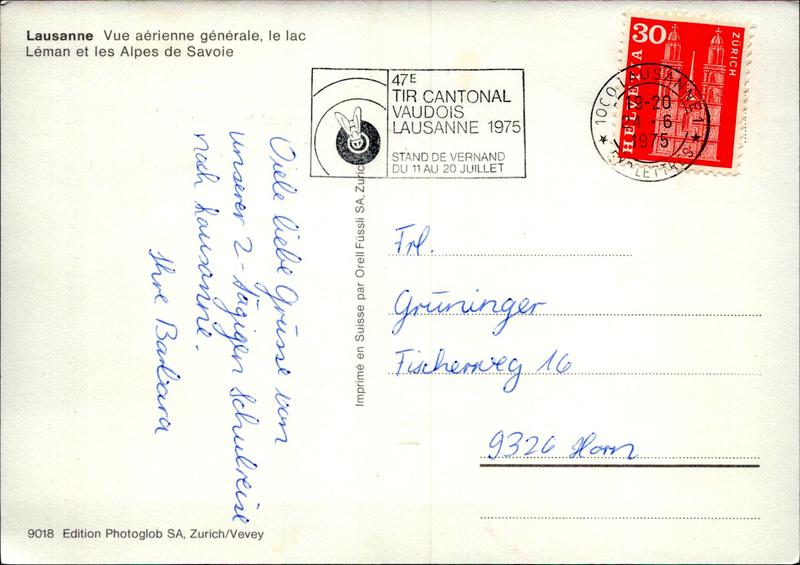 Lausanne Vue aérienne générale, le lac
Léman et les Alpes de Savoie
47E
TIR CANTONAL
VAUDOIS
LAUSANNE 1975
STAND DE VERNAND
DU 11 AU 20 JUILLET
30
HELVETIA
ZÜRICH
LAUSANNE 1
-20
1975
Viele liebe Grüsse von
unserer 2-tägigen Schulreise
nach Lausanne.
Ihre Barbara
Imprimé en Suisse par Orell Füssli SA, Zurich
Frl.
Grüninger
Fischerweg 16
9326 Horn
9018 Edition Photoglob SA, Zurich/Vevey